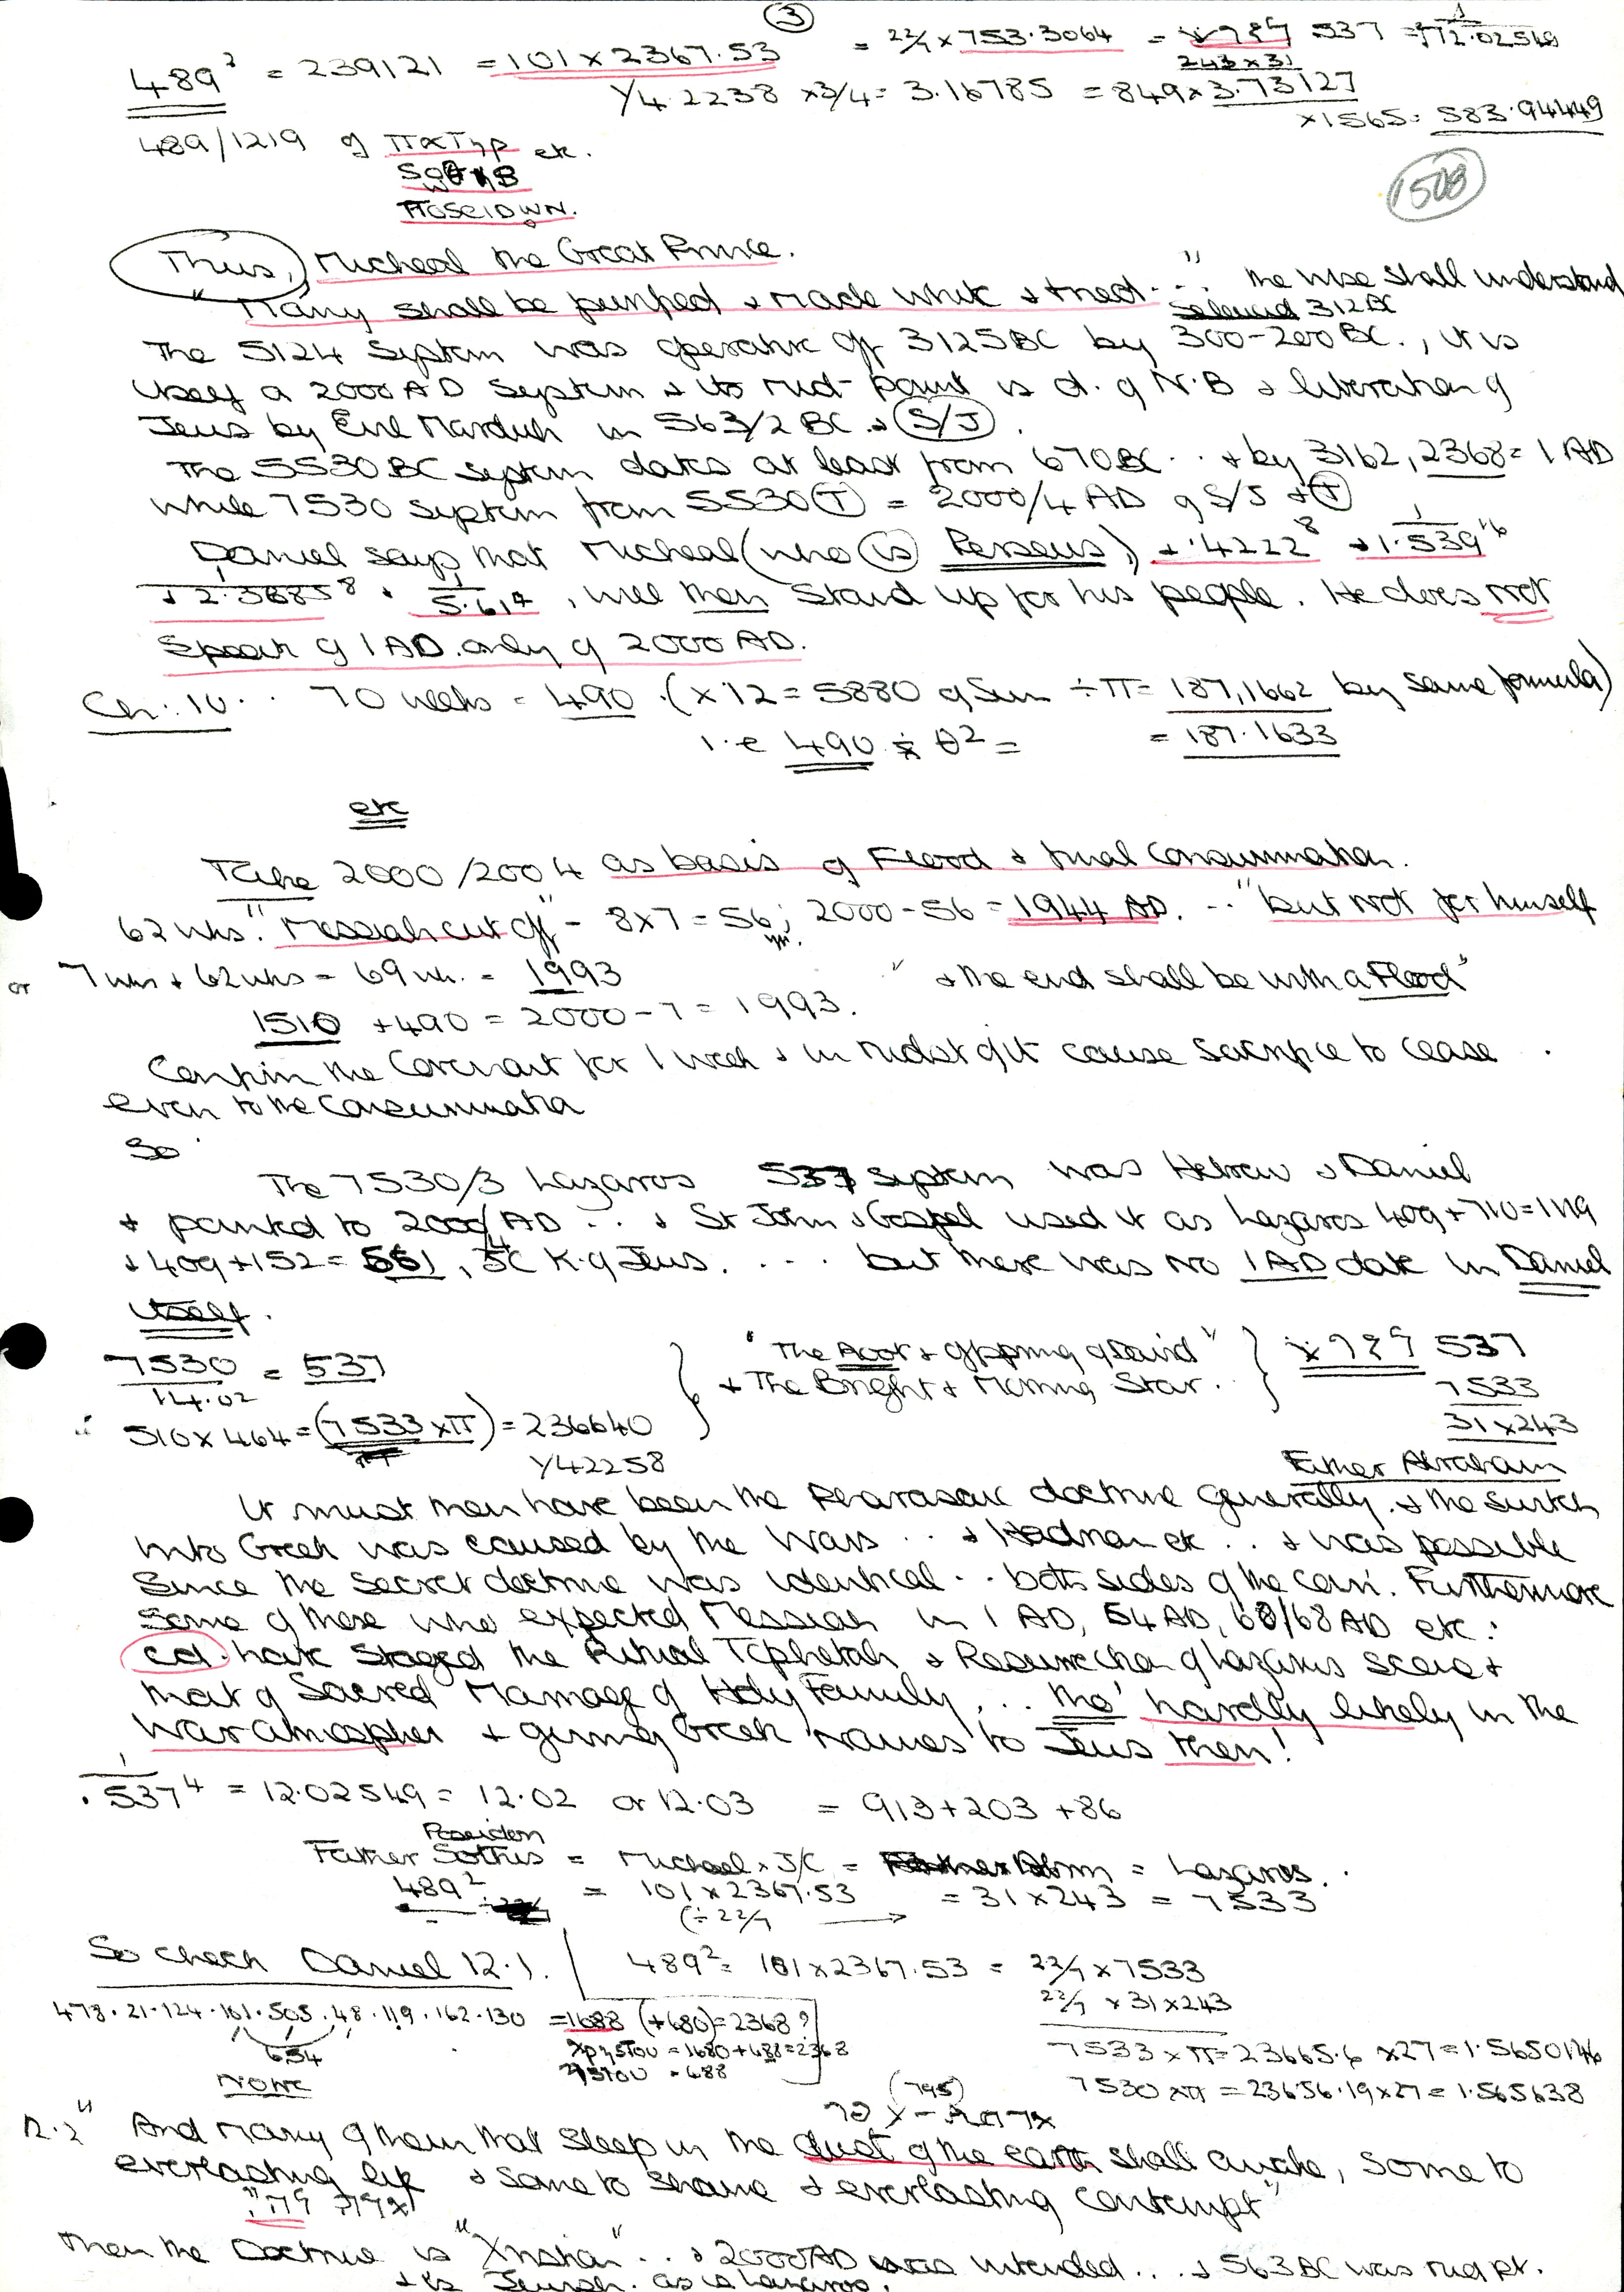 3
489² = 239121 = 101 x 2367.53 = 22/7 x 753.3064 = 537
243 x 31
√4.2238 x 3/4 = 3.16785 = 849 x 3.73127
x 1565 = 583.94449
489/1219 of Πατηρ etc.
1508
ΠOSEIDWN.
Thus, Micheal the Great Prince.
"Many shall be purified + made white + tried ..." the wise shall understand
Seleucid 312 BC
The 5124 System was operative off 3125 BC by 300-200 BC., it is
itself a 2000 AD system + its mid-point is d. of N.B + liberation of
Jews by Evil Marduk in 563/2 BC. + S/J.
The 5530 BC system dates at least from 670 BC .. + by 3162, 2368 = 1 AD
while 7530 system from 5530 T = 2000/4 AD of S/J + T
Daniel says that Micheal (who is Perseus) + .4222⁸ + 1.539¹⁶
, will then Stand up for his people. He does not
Speak of 1 AD. only of 2000 AD.
Ch: 10 .. 70 weeks = 490 . (x 12 = 5880 of Sun ÷ π = 187,1662 by same formula)
i.e 490 ÷ θ² = = 187.1633
etc
Take 2000/2004 as basis of Flood + final Consummation.
62 wks. "Messiah cut off" - 8x7 = 56; 2000-56 = 1944 AD. .. "but not for himself
or 7 wks + 62 wks = 69 wk. = 1993 " + the end shall be with a Flood"
1510 + 490 = 2000 - 7 = 1993.
Confirm the Covenant for 1 week + in midst of it cause Sacrifice to cease .
even to the Consummation
So
The 7530/3 Lazaros 537 System was Hebrew + Daniel
+ pointed to 2000/4 AD .. + St John + Gospel used it as Lazaros 409 + 710 = 1119
+ 409 + 152 = 561, JC K. of Jews. .... but there was no 1 AD date in Daniel
itself.
7530 / 14.02 = 537
"The Root + offspring of David"
+ The Bright + Morning Star.
537
7533
31 x 243
∴ 510 x 464 = (7533 x π) = 236640
√42258
Father Abraham
It must then have been the Pharasaic doctrine generally. + the switch
into Greek was caused by the Wars .. + Hadrian etc .. + was possible
Since the Secret doctrine was identical .. both sides of the coin. Furthermore
Some of those who expected Messiah in 1 AD, 54 AD, 68 AD etc:
cd. have Staged the Ritual Tephetah + Resurrection of Lazarus scene +
that of Sacred Marriage of Holy Family, .. tho' hardly likely in the
War atmosphere + giving Greek names to Jews then!
.537⁴ = 12.02549 = 12.02 or 12.03 = 913 + 203 + 86
Poseidon
Father Sothis = Michael x J/C = = Lazaros.
489² = 101 x 2367.53 = 31 x 243 = 7533
(÷ 22/7
So check Daniel 12.1. 489² = 101 x 2367.53 = 22/7 x 7533
22/7 x 31 x 243
478.21.124.101.505.48.119.162.130 = 1688 (+680) = 2368?
654
= 1680 + 688 = 2368
= 688
None
7533 x π = 23665.6 x 27 = 1.5650146
7530 x π = 23656.19 x 27 = 1.565638
(795)
12.2 "And Many of them that Sleep in the dust of the earth shall awake, Some to
everlasting life + Some to shame + everlasting contempt"
Then the Doctrine is "Xnstian" .. + 2000 AD was intended .. + 563 BC was midpt.
+ is Jewish. as is Lazaros.